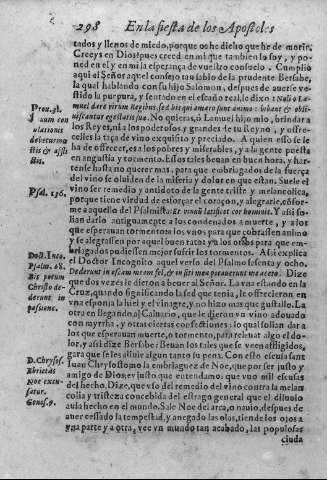 298 En la fiesta de los Apostoles
tados y llenos de miedo, porque os he dicho que he de morir.
Creeys en Dios: pues creed en mi que tambien lo soy, y po-
ned en el y en mi la esperança de vuestro consuelo. Cumplio
aqui el Señor aquel consejo tan sabio de la prudente Bersabe,
la qual hablando con su hijo Salomon, despues de auerse ve-
stido la purpura, y sentado en el escaño real, le dixo:
muel dare vinum Regibus, sed his qui amaro sunt animo: bibant & obli-
uiscantur egestatis suæ. No quieras, ô Lamuel hijo mio, brindar a
los Reyes, ni a los poderosos y grandes de tu Reyno, y ofre-
celles la taça de vino exquisito y preciado. A quien esso se le
ha de ofrecer, es a los pobres y miserables, y a la gente puesta
en angustia y tormento. Estos tales beuan en buen hora, y har-
tense hasta no querer mas, para que embriagados de la fuerça
del vino se oluiden de la miseria y dolor en que estan. Suele el
vino ser remedio y antidoto de la gente triste y melancolica,
porque tiene virtud de esforçar el coraçon, y alegrarle, cõfor-
me a aquello del Psalmista: Et vinum lætificet cor hominis. Y assi so-
lian darlo antiguamente a los condenados a muerte, y a los
que esperauan tormentos: los vnos para que cobrassen animo
y se alegrassen por aquel buen rato: y los otros para que em-
briagados pudiessen mejor sufrir los tormentos. Assi explica
el Doctor Incognito aquel verso del Psalmo sesenta y ocho.
Dederunt in escam meam fel, & in siti mea potauerunt me aceto. Dize
que dos vezes le dieron a beuer al Señor. La vna estando en la
Cruz, quando significando la sed que tenia, le offrecieron en
vna esponja la hiel y el vinagre, y no hizo mas que gustallo. La
otra en llegando al Caluario, que le dieron vn vino adouado
con myrrha, y otras ciertas confectiones: lo qual solian dar a
los que esperauan muerte, o tormento, para releuar algo el do-
lor, y assi dize Bersabe: Beuan los tales que se veen affligidos,
para que se les aliuie algun tanto su pena. Con esto escusa sant
Juan Chrysostomo la embriaguez de Noe, que por ser justo y
amigo de Dios, es justo que entendamos que vuo mil escusas
del hecho. Dize, que vso del remedio del vino contra la melan-
colia y tristeza concebida del estrago general que el diluuio
auia hecho en el mundo. Sale Noe del arca, o nauio, despues de
auer cessado la tempestad, y anegado las olas, tiende los ojos a
vna parte y a otra, vee vn mundo tan acabado, las populosas
ciuda
Prou. 31.
Vinum con
solationis
debetur mœ
stis & affli
ctis.
Psal.
Doct. Inco.
Psalm. 68.
Bis potum
Christo de-
derunt in
passione.
D. Chrysos.
Ebrietas
Noe excu-
satur.
Genes. 9.